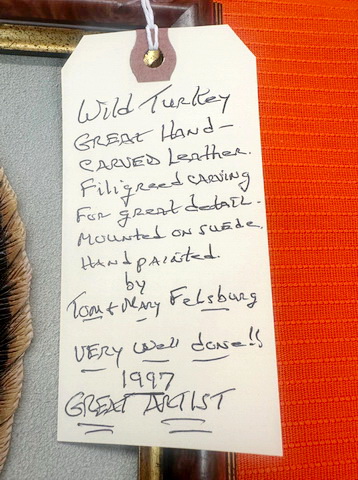 Wild Turkey
GREAT HAND-
CARVED Leather.
Filigreed carving
For great detail.
Mounted on suede.
Handpainted.
by
Tom & Mary Felsburg
VERY Well done!!
1997
GREAT ARTIST